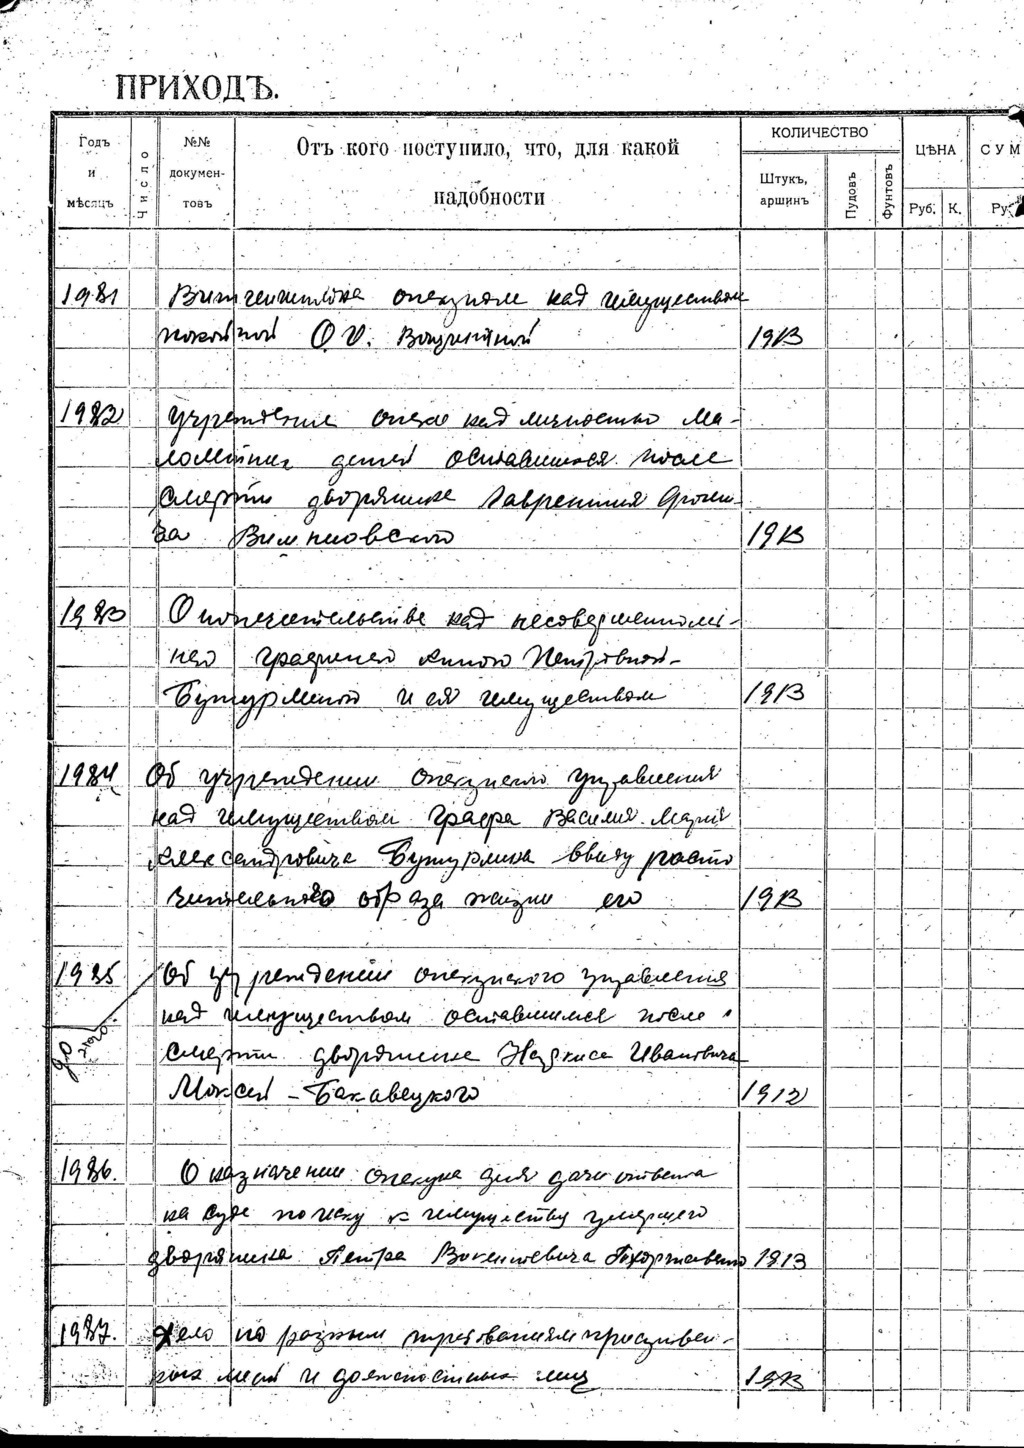 ПРИХОДЪ.
Годъ и мѣсяцъ
Число
№№ документовъ
Отъ кого поступило, что, для какой надобности
КОЛИЧЕСТВО
Штукъ, аршинъ
Пудовъ
Фунтовъ
ЦѢНА
Руб. К.
СУМ
Ру
1981 опекуном над имуществом
покойной О. 1913
1982 Учреждение опеки над личностью ма-
лолетних детей оставшихся после
смерти дворянина Лаврентия
1913
1983 О попечительстве над несовершеннолет-
ней графиней Анной Петровной
Бутурлиной и ея имуществом 1913
1984 Об учреждении опекунского управления
над имуществом графа Василия Мария
Александровича Бутурлина ввиду расто
чительного образа жизни его 1913
1985 Об учреждении опекунского управления
над имуществом оставшимся после
до этого.
смерти дворянина Наркиса Ивановича
Мокосей-Бакавецкого 1912
1986. О назначении опекуна для дачи ответа
на суде по иску к имуществу умершего
дворянина Петра Викентевича 1913
1987. Дело по разным требованиям присутвен-
ных мест и должностных лиц 1913